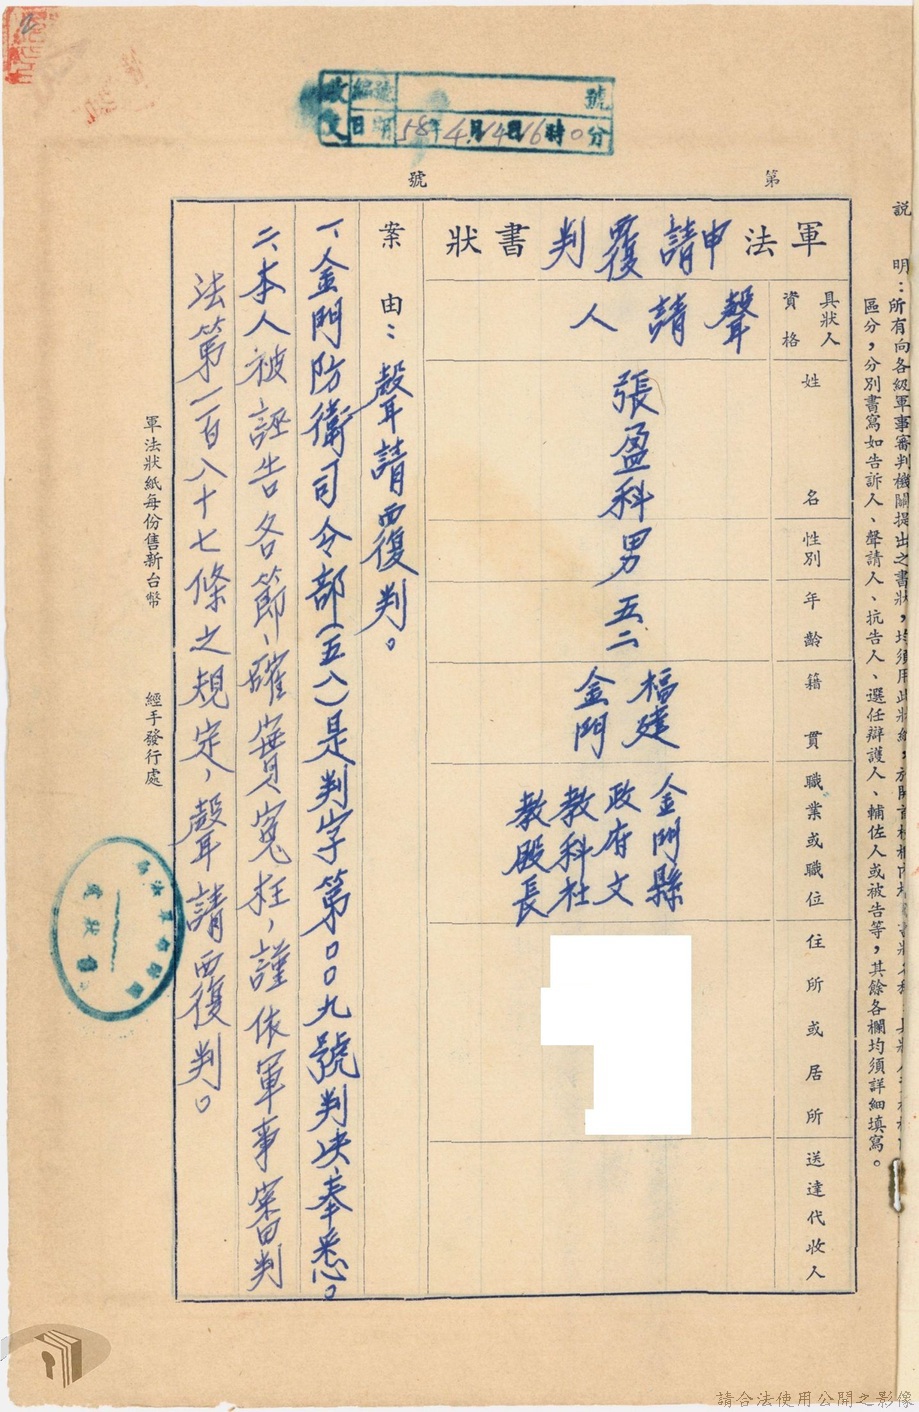 收文
編號 號
日期 58年4月14日16時0分
第 號
說明：所有向各級軍事審判機關提出之書狀，均須用此狀紙
區分，分別書寫如告訴人、聲請人、抗告人、選任辯護人、輔佐人或被告等，其餘各欄均須詳細填寫。
軍法申請覆判書狀
具狀人資格 聲請人
姓名 張盈科
性別 男
年齡 五二
籍貫 福建金門
職業或職位 金門縣政府文教科社教股長
住所或居所
送達代收人
案由：聲請覆判。
一、金門防衛司令部(五八)是判字第〇〇九號判决奉悉。
二、本人被誣告各節，確實寃枉，謹依軍事審判
法第一百八十七條之規定，聲請覆判。
軍法狀紙每份售新台幣 經手發行處
請合法使用公開之影像